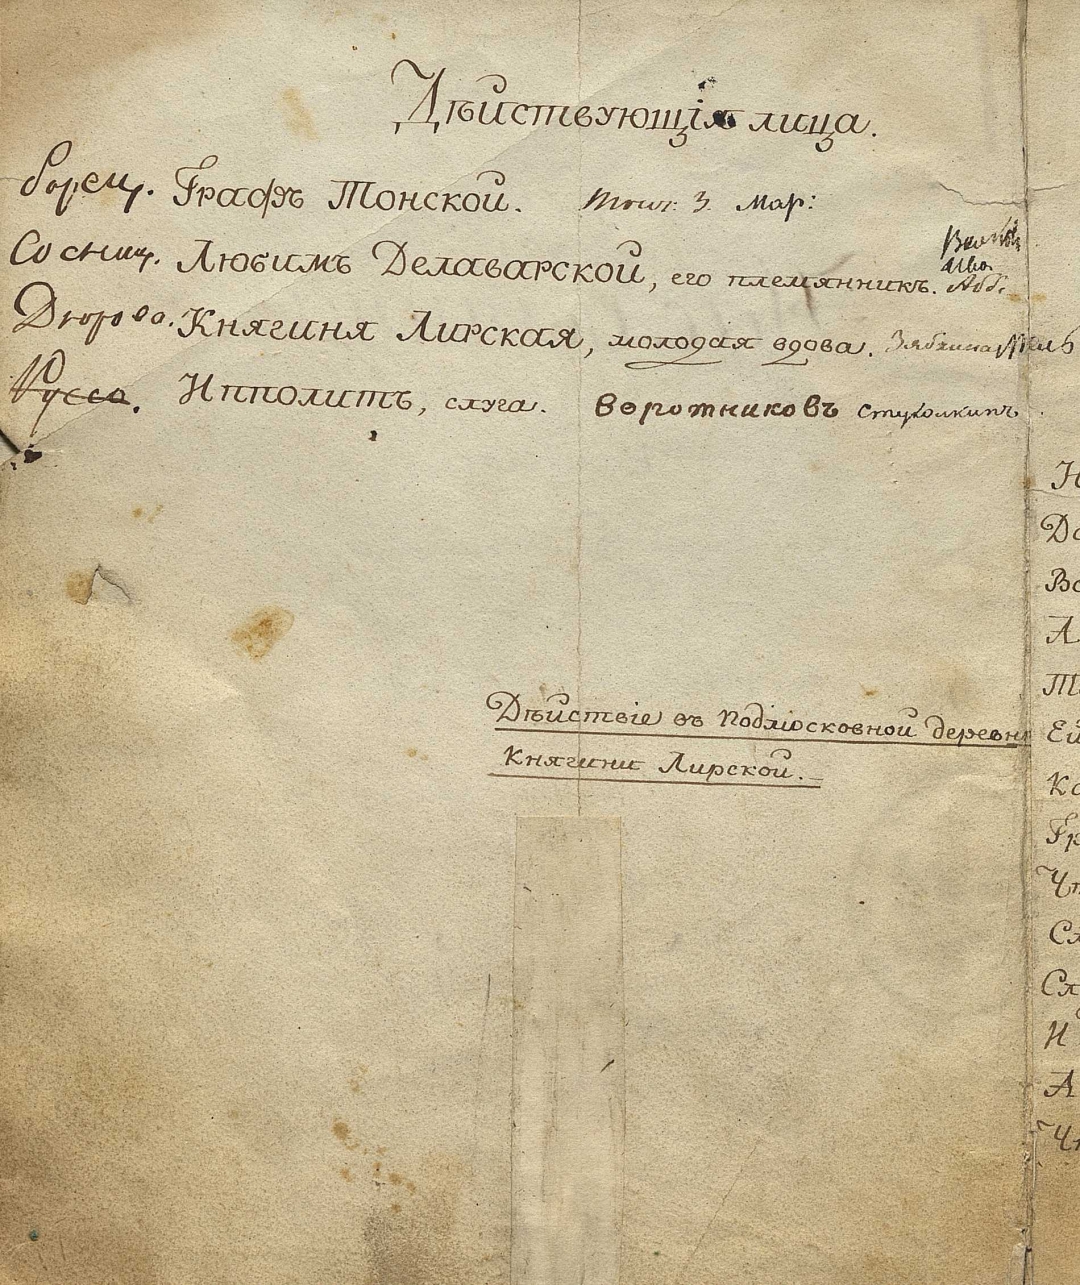 Дѣйствующія лица.
Борец. Графъ Тонской. 3. Мар:
Сосниц. Любимъ Делаварской, его племянникъ.
Дюрова. Княгиня Лирская, молодая вдова.
Ипполитъ, слуга. Воротниковъ Стуколкинъ.
Дѣйствіе въ подмосковной деревнѣ
Княгини Лирской.
Н
До
Во
А
Ей
Ко
Гр
Сл
Сл
Н
А